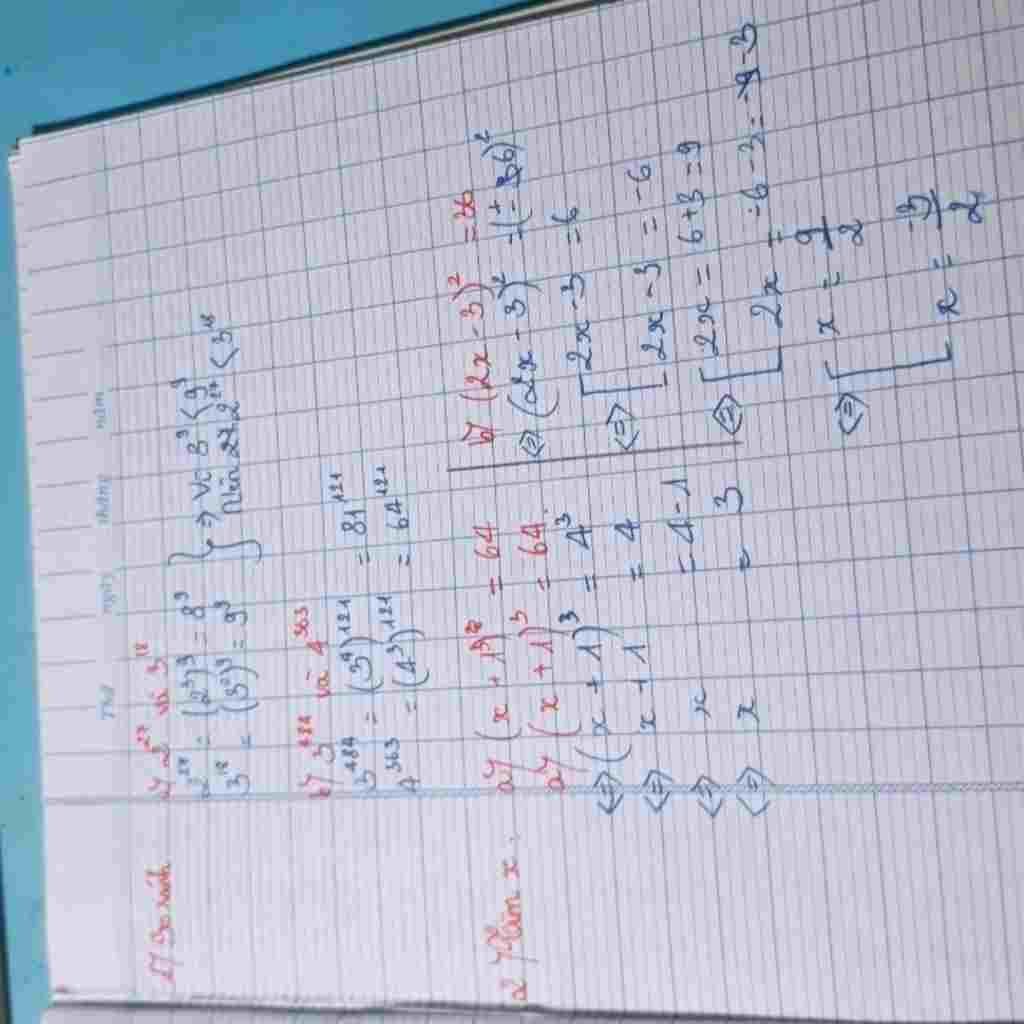 Thứ ngày tháng năm
1/ So sánh
a/ 2²⁷ và 3¹⁸
2²⁷ = (2³)⁹ = 8⁹ } => Vì 8⁹ < 9⁹
3¹⁸ = (3²)⁹ = 9⁹ Nên 2²⁷ < 3¹⁸
b/ 3⁴⁸⁴ và 4³⁶³
3⁴⁸⁴ = (3⁴)¹²¹ = 81¹²¹
4³⁶³ = (4³)¹²¹ = 64¹²¹
2/ Tìm x.
a/ (x + 1)³ = 64
a/ (x + 1)³ = 64
<=> (x + 1)³ = 4³
<=> x + 1 = 4
<=> x = 4 - 1
<=> x = 3
b/ (2x - 3)² = 36
<=> (2x - 3)² = (±6)²
<=> [ 2x - 3 = 6
2x - 3 = -6
<=> [ 2x = 6 + 3 = 9
2x = -6 - 3 = -3
<=> [ x = 9/2
x = -3/2